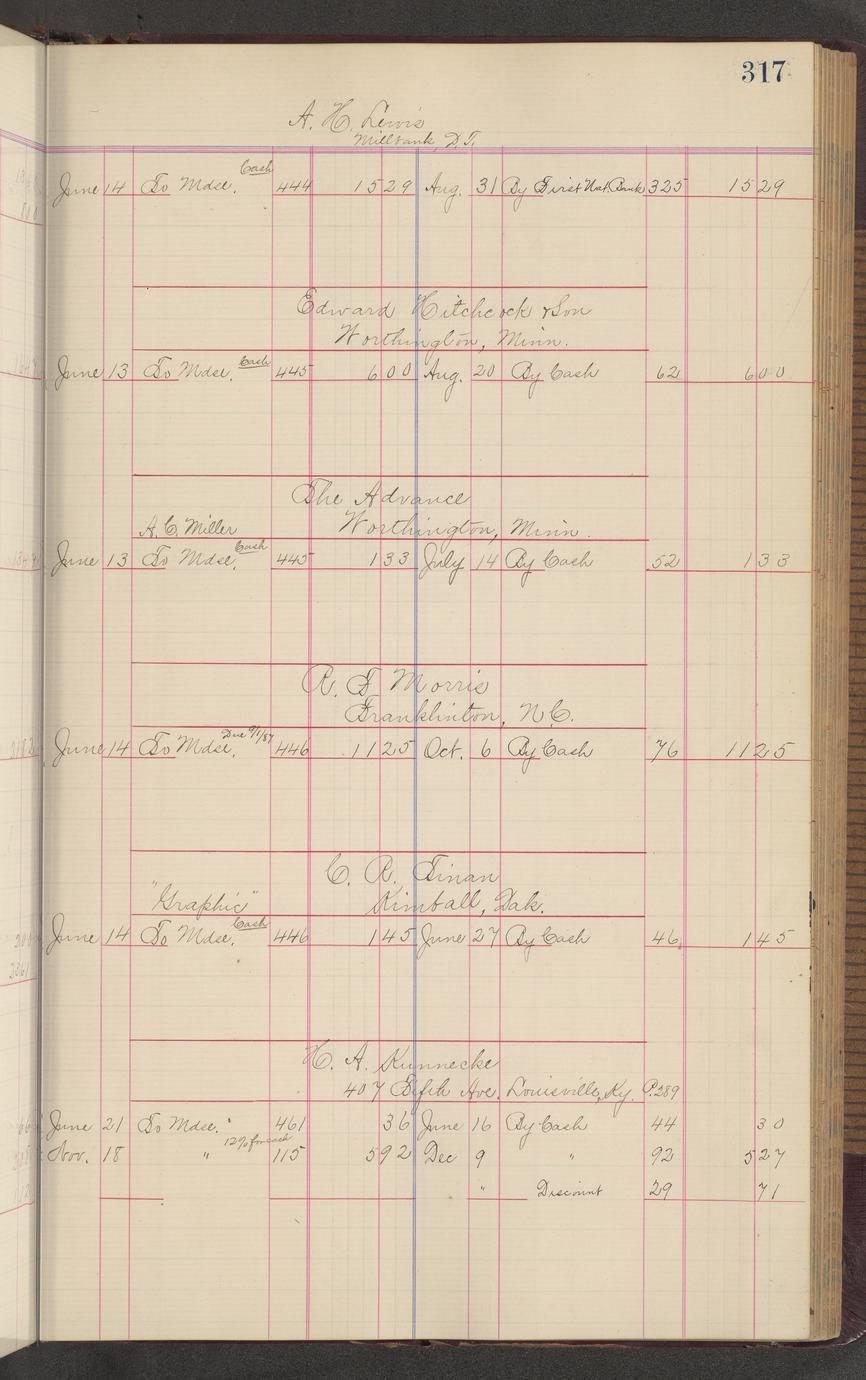 317
A. H. Lewis
Millbank, D.T.
June 14 To Mdse. Cash 444 1529 Aug. 31 By First Nat. Bank 325 1529
Edward Hitchcock & Son
Worthington, Minn.
June 13 To Mdse. Cash 445 600 Aug. 20 By Cash 62 600
The Advance
A. C. Miller Worthington, Minn.
June 13 To Mdse. Cash 445 133 July 14 By Cash 52 133
R. F. Morris
Franklinton, N.C.
June 14 To Mdse. Due 9/1/87 446 1125 Oct. 6 By Cash 76 1125
C. R. Tinan
"Graphic" Kimball, Dak.
June 14 To Mdse. Cash 446 145 June 27 By Cash 46 145
H. A. Kunnecke
407 Fifth Ave. Louisville, Ky. P.289
June 21 To Mdse. 461 36 June 16 By Cash 44 30
Nov. 18 " 12% for cash 115 592 Dec 9 " 92 527
" Discount 29 71